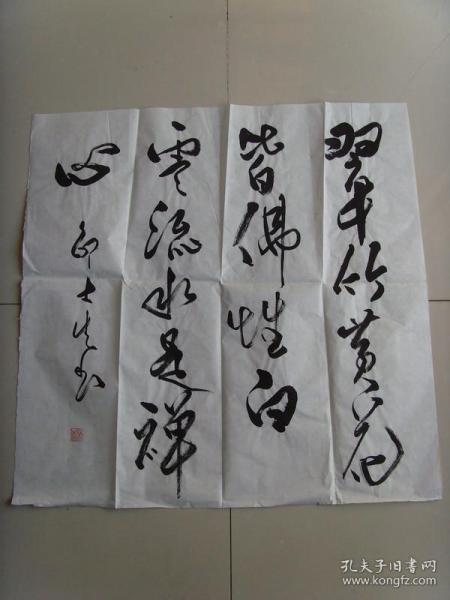 翠竹黄花
皆佛性白
云流水是禅
心
士生书
孔夫子旧书网
www.kongfz.com